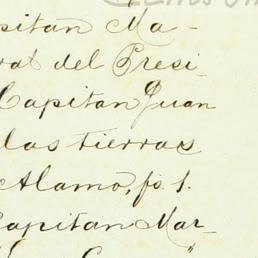 pitan Ma-
rat del Presi-
Capitan Juan
las tierras
Alamo, fs. 1.
Capitan Mar-